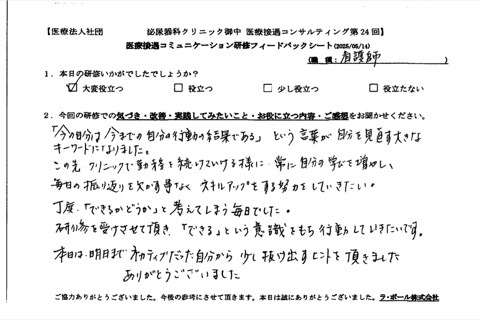 【医療法人社団 泌尿器科クリニック御中 医療接遇コンサルティング第24回】
医療接遇コミュニケーション研修フィードバックシート(2025/05/14)
(職種：看護師)
1．本日の研修いかがでしたでしょうか？
☑大変役立つ □役立つ □少し役立つ □役立たない
2．今回の研修での気づき・改善・実践してみたいこと・お役に立つ内容・ご感想をお聞かせください。
「今の自分は今までの自分の行動の結果である」という言葉が自分を見直す大きな
キーワードになりました。
この先クリニックで勤務を続けていける様に、常に自分の学びを増やし、
毎日の振り返りを欠かす事なくスキルアップをする努力をしていきたい。
丁度、「できるかどうか」と考えてしまう毎日でした。
研修を受けさせて頂き、「できる」という意識をもち行動していきたいです。
本日は、明日までネガティブだった自分から少し抜け出すヒントを頂きました
ありがとうございました
ご協力ありがとうございました。今後の参考にさせて頂きます。本日は誠にありがとうございました。ラ・ポール株式会社